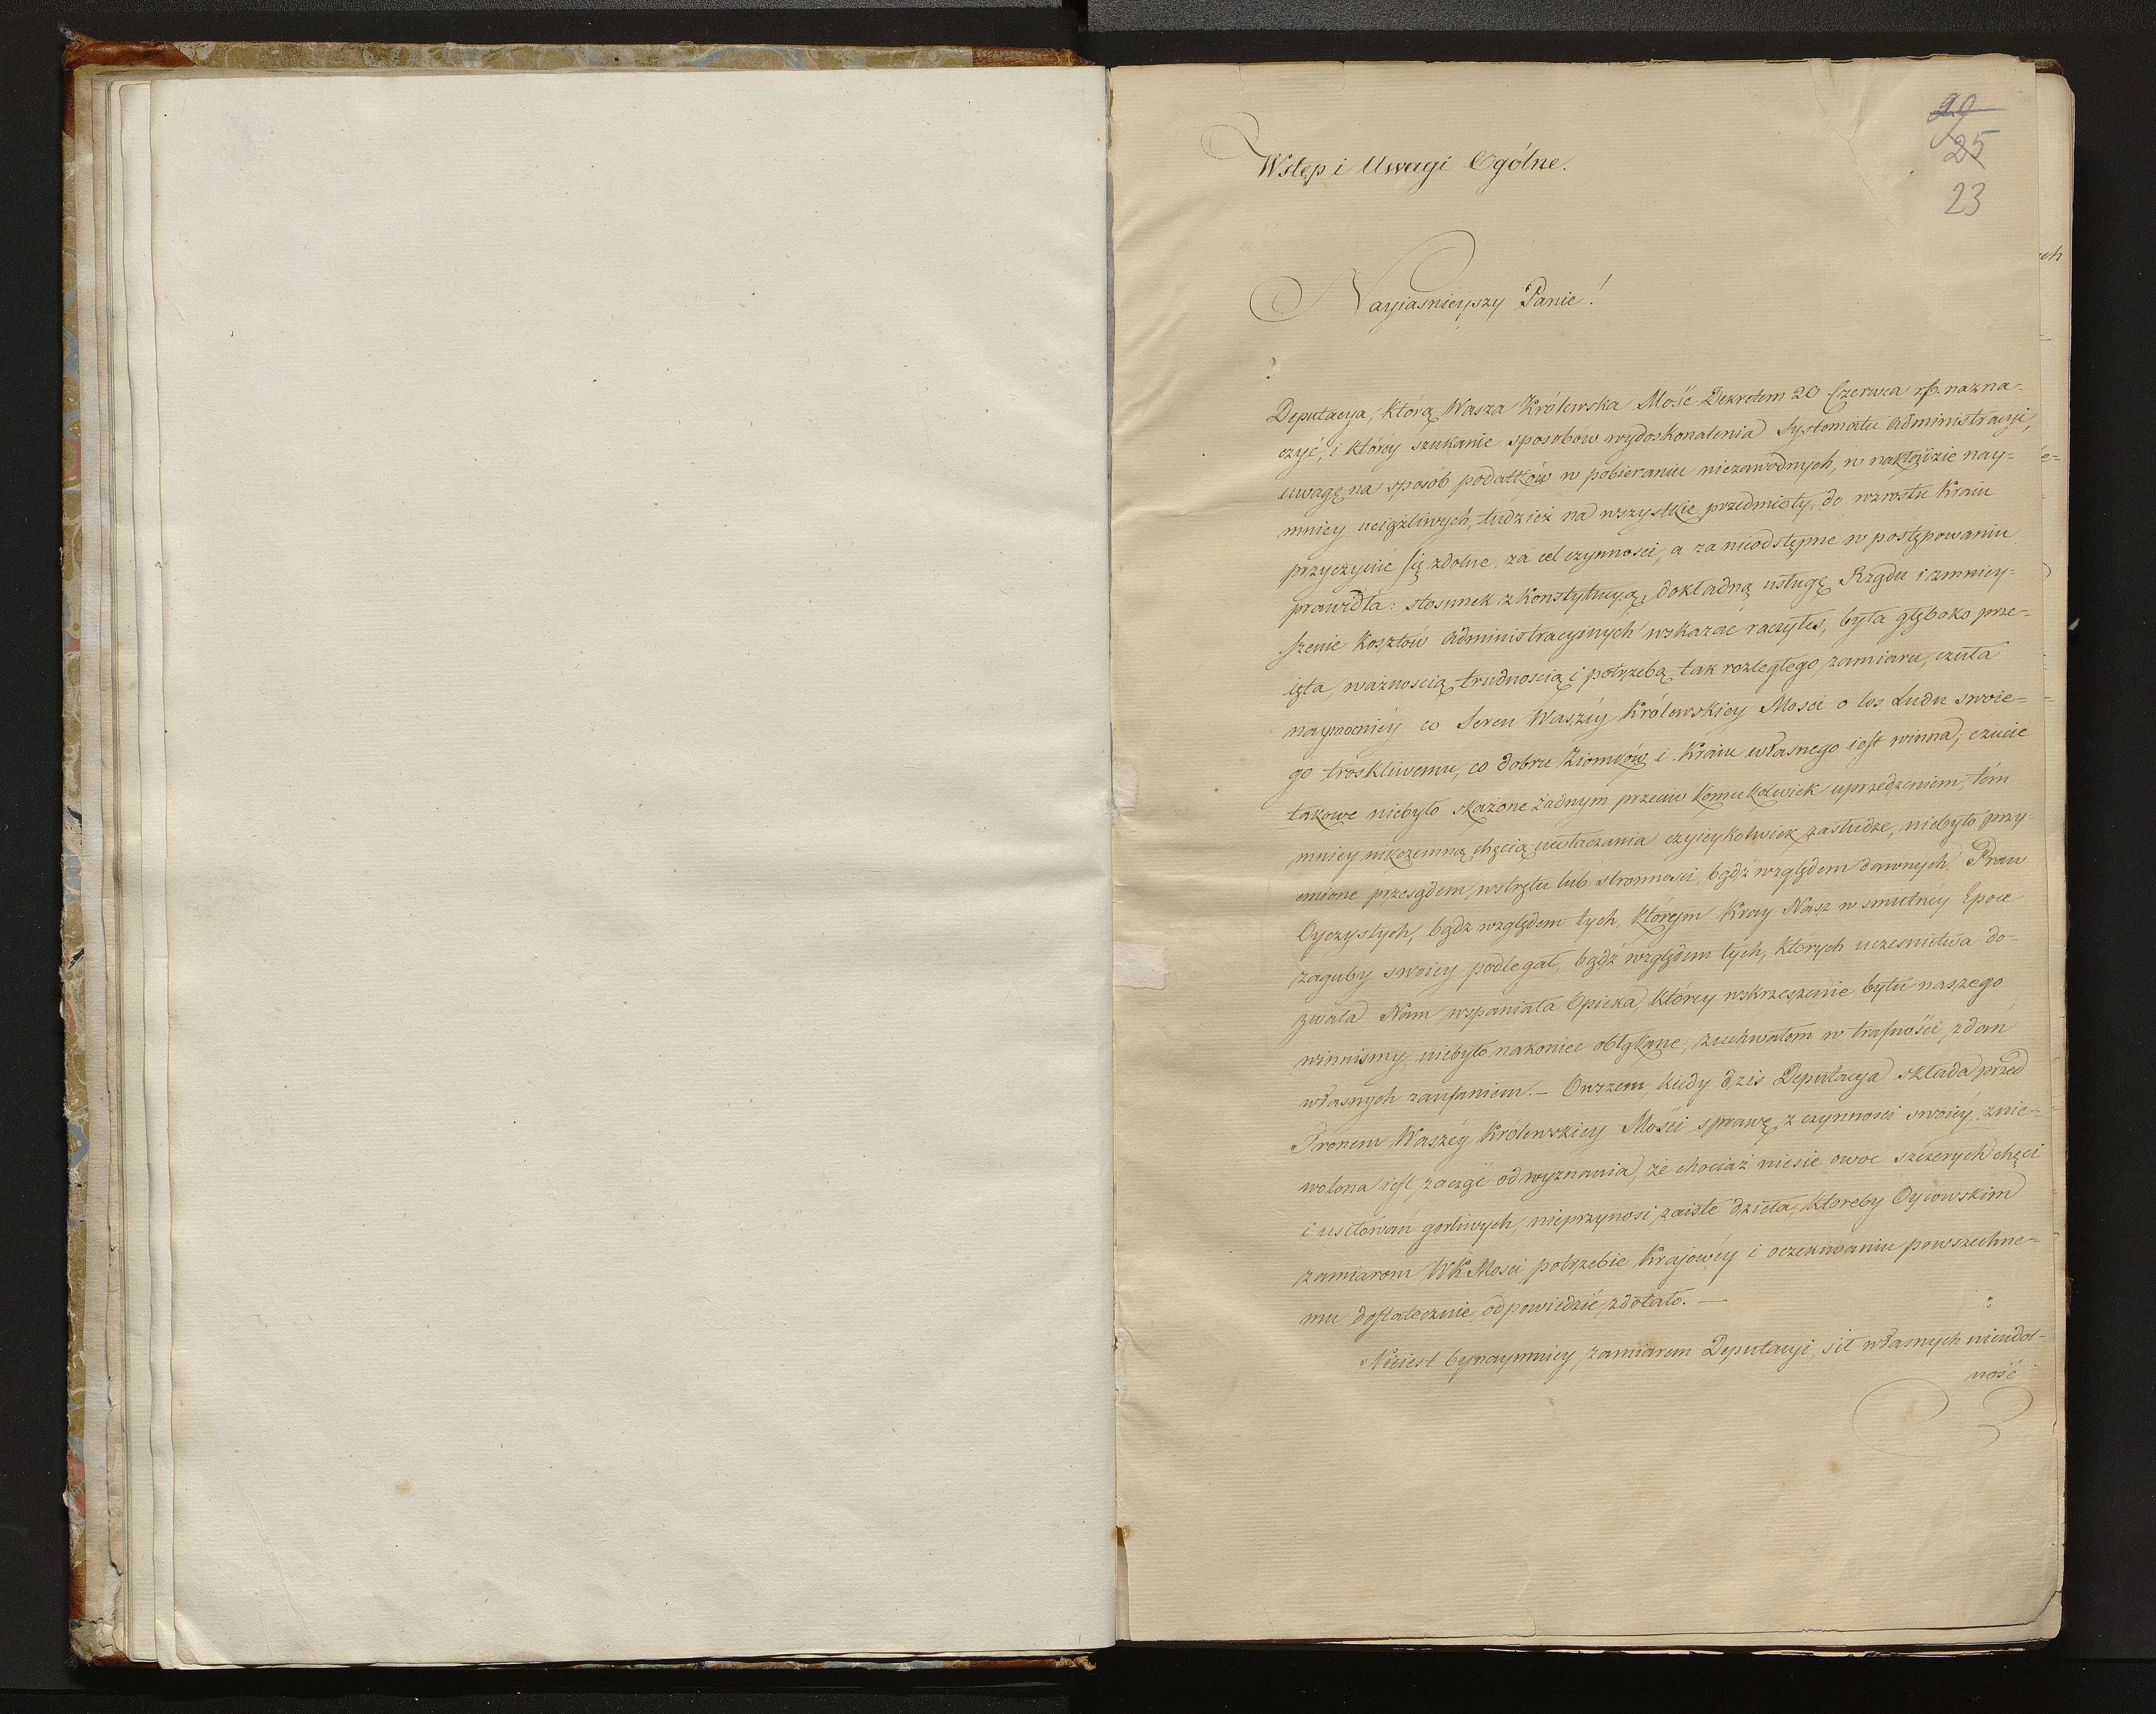 90
25
23
Wstęp i Uwagi Ogólne.
Nayiaśnieyszy Panie!
Deputacya, którą Wasza Królewska Mość Dekretem 20 Czerwca rb. nazna-
czyć, i którey szukanie sposobów wydoskonalenia Systematu Administracyi,
uwagę na sposób podatków w pobieraniu niezawodnych, w nakładzie nay-
mniey uciążliwych, tudzież na wszystkie przedmioty, do wzrostu Kraiu
przyczynić się zdolne, za cel czynności, a za nieodstępne w postępowaniu
prawidła: stosunek z Konstytucyą, dokładną usługę Rządu i zmniey-
szenie Kosztów Administracyinych wskazać raczyłeś, była głęboko prze-
ięta, ważnością trudnością i potrzebą tak rozległego zamiaru, czuła
naymocniéy co Sercu Waszéy Królewskiey Mości o los Ludu swoie-
go troskliwemu, co dobru Ziomków i Kraiu własnego iest winna; czucie
takowe niebyło skażone żadnym przeciw komukolwiek uprzedzeniem, tém
mniey nikczemną chęcią uwłaczania czyieykolwiek zasłudze, niebyło przy-
ćmione przesądem, wstrętu lub stronności, bądź względem dawnych Praw
Oyczystych, bądź względem tych, którym Kray Nasz w smutnéy Epoce
zaguby swoiey podlegał, bądź względem tych, których uczesnictwa do-
zwala Nam wspaniała Opieka, którey wskrzeszenie bytu naszego
winnismy, niebyło nakoniec obłąkane, zuchwałem w trafności zdań
własnych zaufaniem. — Owszem, kiedy dziś Deputacya składa przed
Tronem Waszéy Królewskiey Mości sprawę z czynności swoiéy, znie-
wolona iest zacząć od wyznania, że chociaż niesie owoc szczerych chęci
i usiłowań gorliwych, nieprzynosi zaiste dzieła, któreby Oycowskim
zamiarom WK Mości, potrzebie Krajowéy i oczekiwaniu powszechne-
mu dostatecznie odpowiedzić zdołało. —
Nieiest bynaymniey zamiarem Deputacyi, sił własnych nieudol-
ność